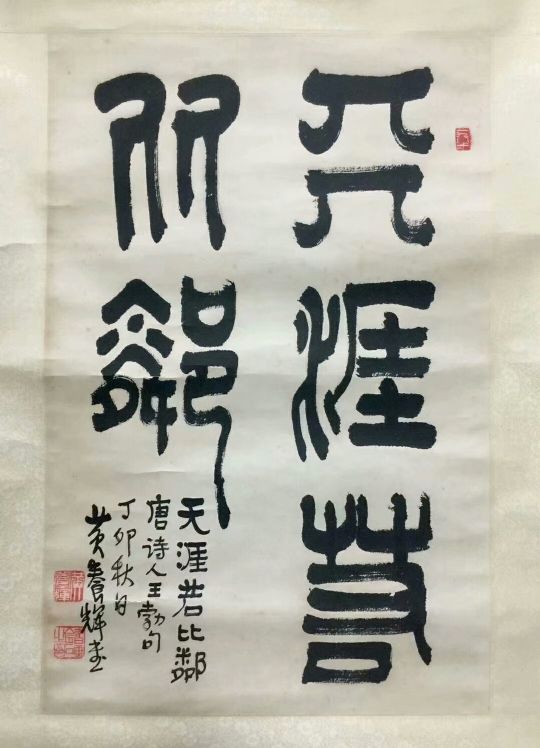 天涯若
比鄰
天涯若比鄰
唐诗人王勃句
丁卯秋日
黄養輝書